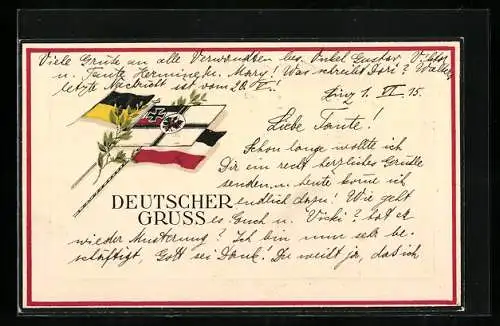 Viele Grüße an alle Verwandten bes. Onkel Gustav,
u. Tante Hermine u. Mary! Was schreibt Dori?
letzte Nachricht ist vom 26. V.
Linz 1. VI 15.
Liebe Tante!
Schon lange wollte ich
Dir ein recht herzliches Grüßle
senden u. heute komme ich
DEUTSCHER
GRUSS
endlich dazu! Wie geht
es Euch u. Vicki? hat er
wieder Musterung? Ich bin nun sehr be-
schäftigt, Gott sei Dank! Du weißt ja, daß ich